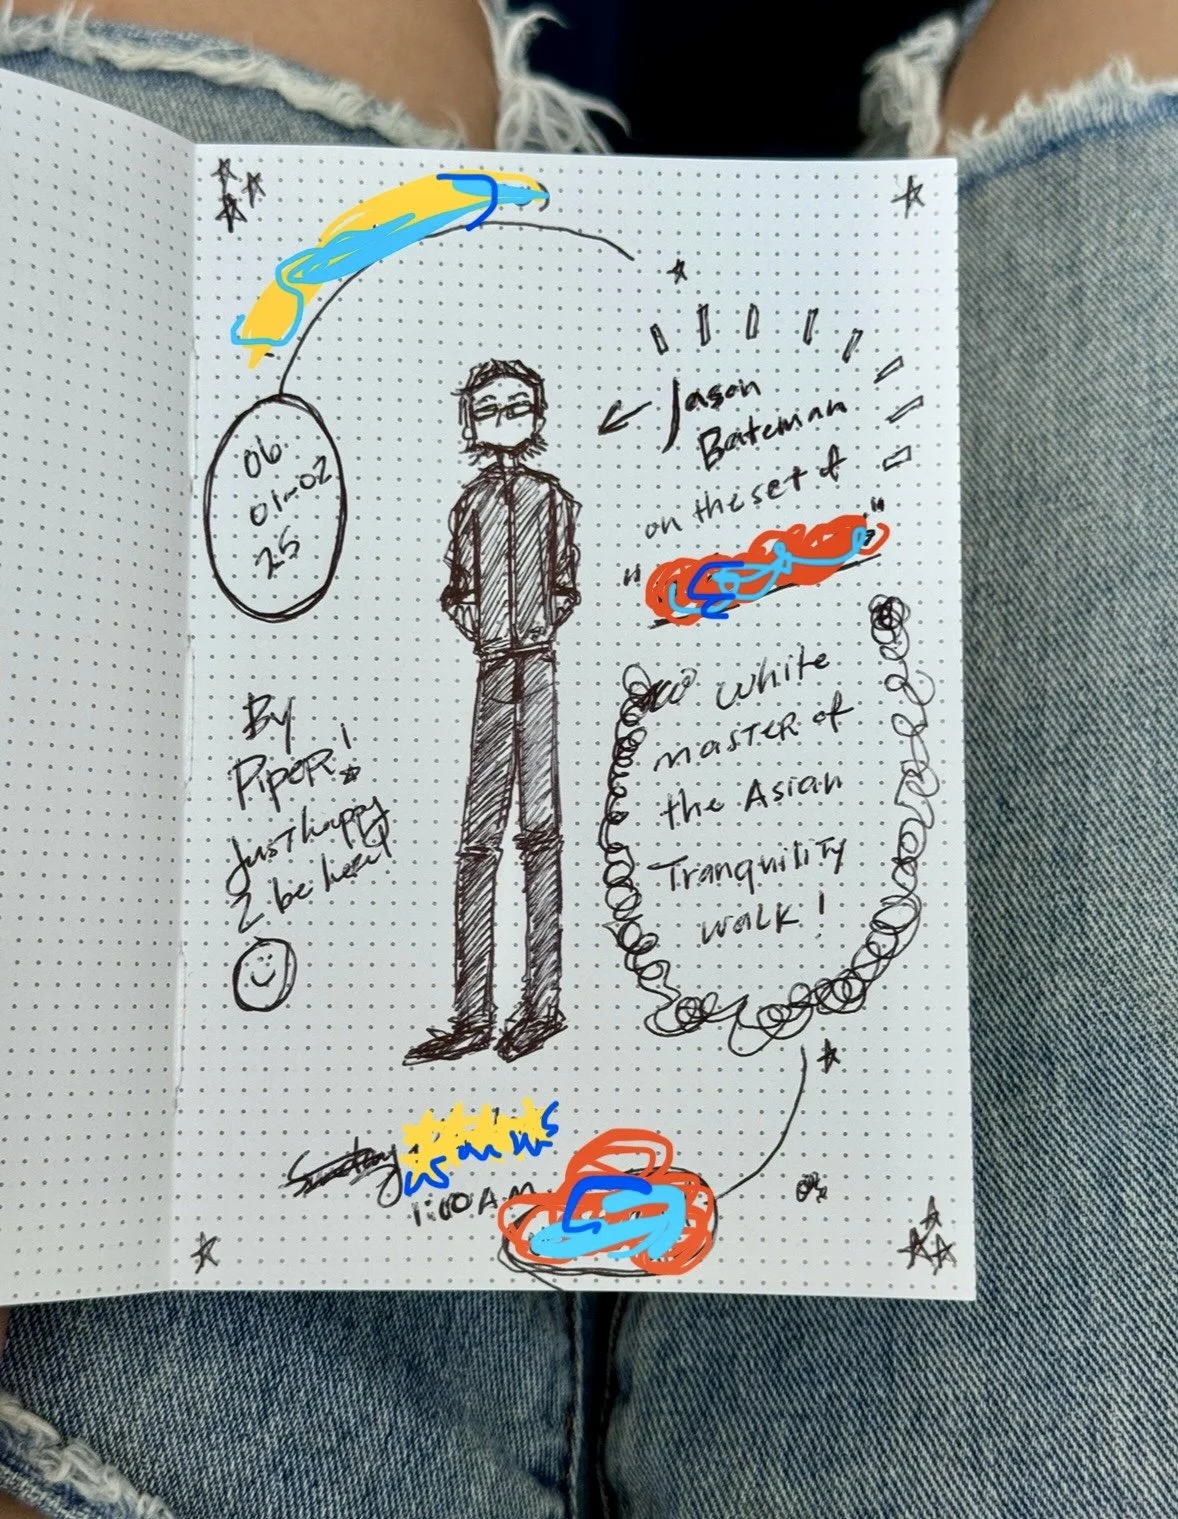 06
01-02
25
Jason
Bateman
on the set of
"
"
White
master of
the Asian
Tranquility
walk!
By
Piper!
Just happy
2 be here!
1:00 A.M